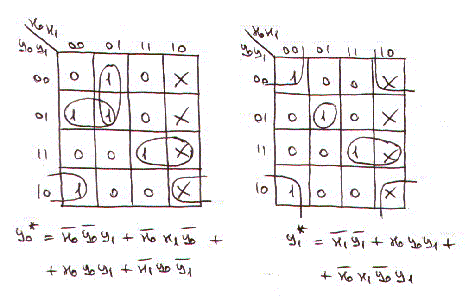 x₀x₁
y₀y₁ 00 01 11 10
00 0 1 0 X
01 1 1 0 X
11 0 0 1 X
10 1 0 0 X
y₀* = x̅₀ y̅₀ y₁ + x̅₀ x₁ y̅₀ +
+ x₀ y₀ y₁ + x̅₁ y₀ y̅₁
x₀x₁
y₀y₁ 00 01 11 10
00 1 0 0 X
01 0 1 0 X
11 0 0 1 X
10 1 0 0 X
y₁* = x̅₁ y̅₁ + x₀ y₀ y₁ +
+ x̅₀ x₁ y̅₀ y₁